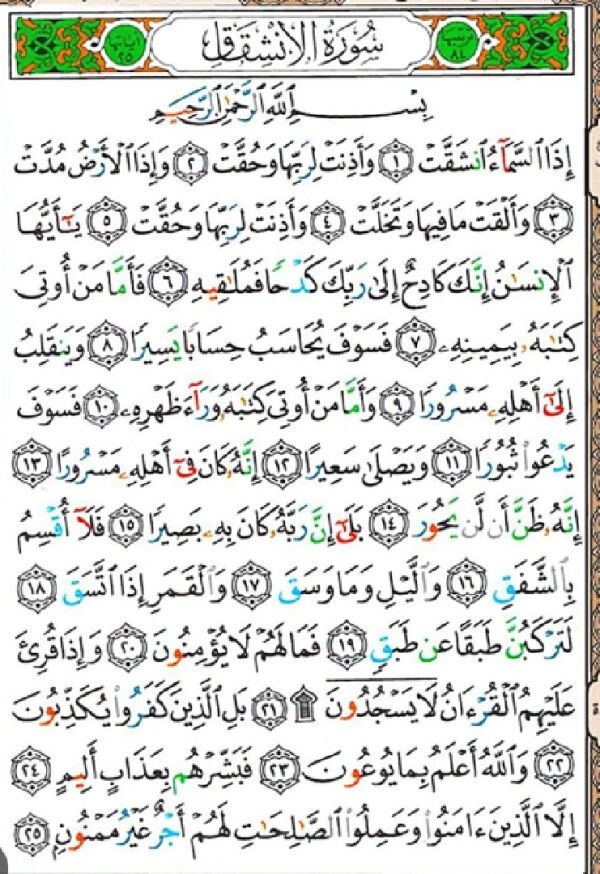 ترتيبها ٨٤ سُورَةُ الانْشِقَاقِ آياتها ٢٥
بِسْمِ اللَّهِ الرَّحْمَٰنِ الرَّحِيمِ
إِذَا السَّمَآءُ ٱنشَقَّتْ ١ وَأَذِنَتْ لِرَبِّهَا وَحُقَّتْ ٢ وَإِذَا ٱلْأَرْضُ مُدَّتْ
٣ وَأَلْقَتْ مَا فِيهَا وَتَخَلَّتْ ٤ وَأَذِنَتْ لِرَبِّهَا وَحُقَّتْ ٥ يَٰٓأَيُّهَا
ٱلْإِنسَٰنُ إِنَّكَ كَادِحٌ إِلَىٰ رَبِّكَ كَدْحًا فَمُلَٰقِيهِ ٦ فَأَمَّا مَنْ أُوتِىَ
كِتَٰبَهُۥ بِيَمِينِهِۦ ٧ فَسَوْفَ يُحَاسَبُ حِسَابًا يَسِيرًا ٨ وَيَنقَلِبُ
إِلَىٰٓ أَهْلِهِۦ مَسْرُورًا ٩ وَأَمَّا مَنْ أُوتِىَ كِتَٰبَهُۥ وَرَآءَ ظَهْرِهِۦ ١٠ فَسَوْفَ
يَدْعُوا۟ ثُبُورًا ١١ وَيَصْلَىٰ سَعِيرًا ١٢ إِنَّهُۥ كَانَ فِىٓ أَهْلِهِۦ مَسْرُورًا ١٣
إِنَّهُۥ ظَنَّ أَن لَّن يَحُورَ ١٤ بَلَىٰٓ إِنَّ رَبَّهُۥ كَانَ بِهِۦ بَصِيرًا ١٥ فَلَآ أُقْسِمُ
بِٱلشَّفَقِ ١٦ وَٱلَّيْلِ وَمَا وَسَقَ ١٧ وَٱلْقَمَرِ إِذَا ٱتَّسَقَ ١٨
لَتَرْكَبُنَّ طَبَقًا عَن طَبَقٍ ١٩ فَمَا لَهُمْ لَا يُؤْمِنُونَ ٢٠ وَإِذَا قُرِئَ
عَلَيْهِمُ ٱلْقُرْءَانُ لَا يَسْجُدُونَ ۩ ٢١ بَلِ ٱلَّذِينَ كَفَرُوا۟ يُكَذِّبُونَ
٢٢ وَٱللَّهُ أَعْلَمُ بِمَا يُوعُونَ ٢٣ فَبَشِّرْهُم بِعَذَابٍ أَلِيمٍ ٢٤
إِلَّا ٱلَّذِينَ ءَامَنُوا۟ وَعَمِلُوا۟ ٱلصَّٰلِحَٰتِ لَهُمْ أَجْرٌ غَيْرُ مَمْنُونٍ ٢٥